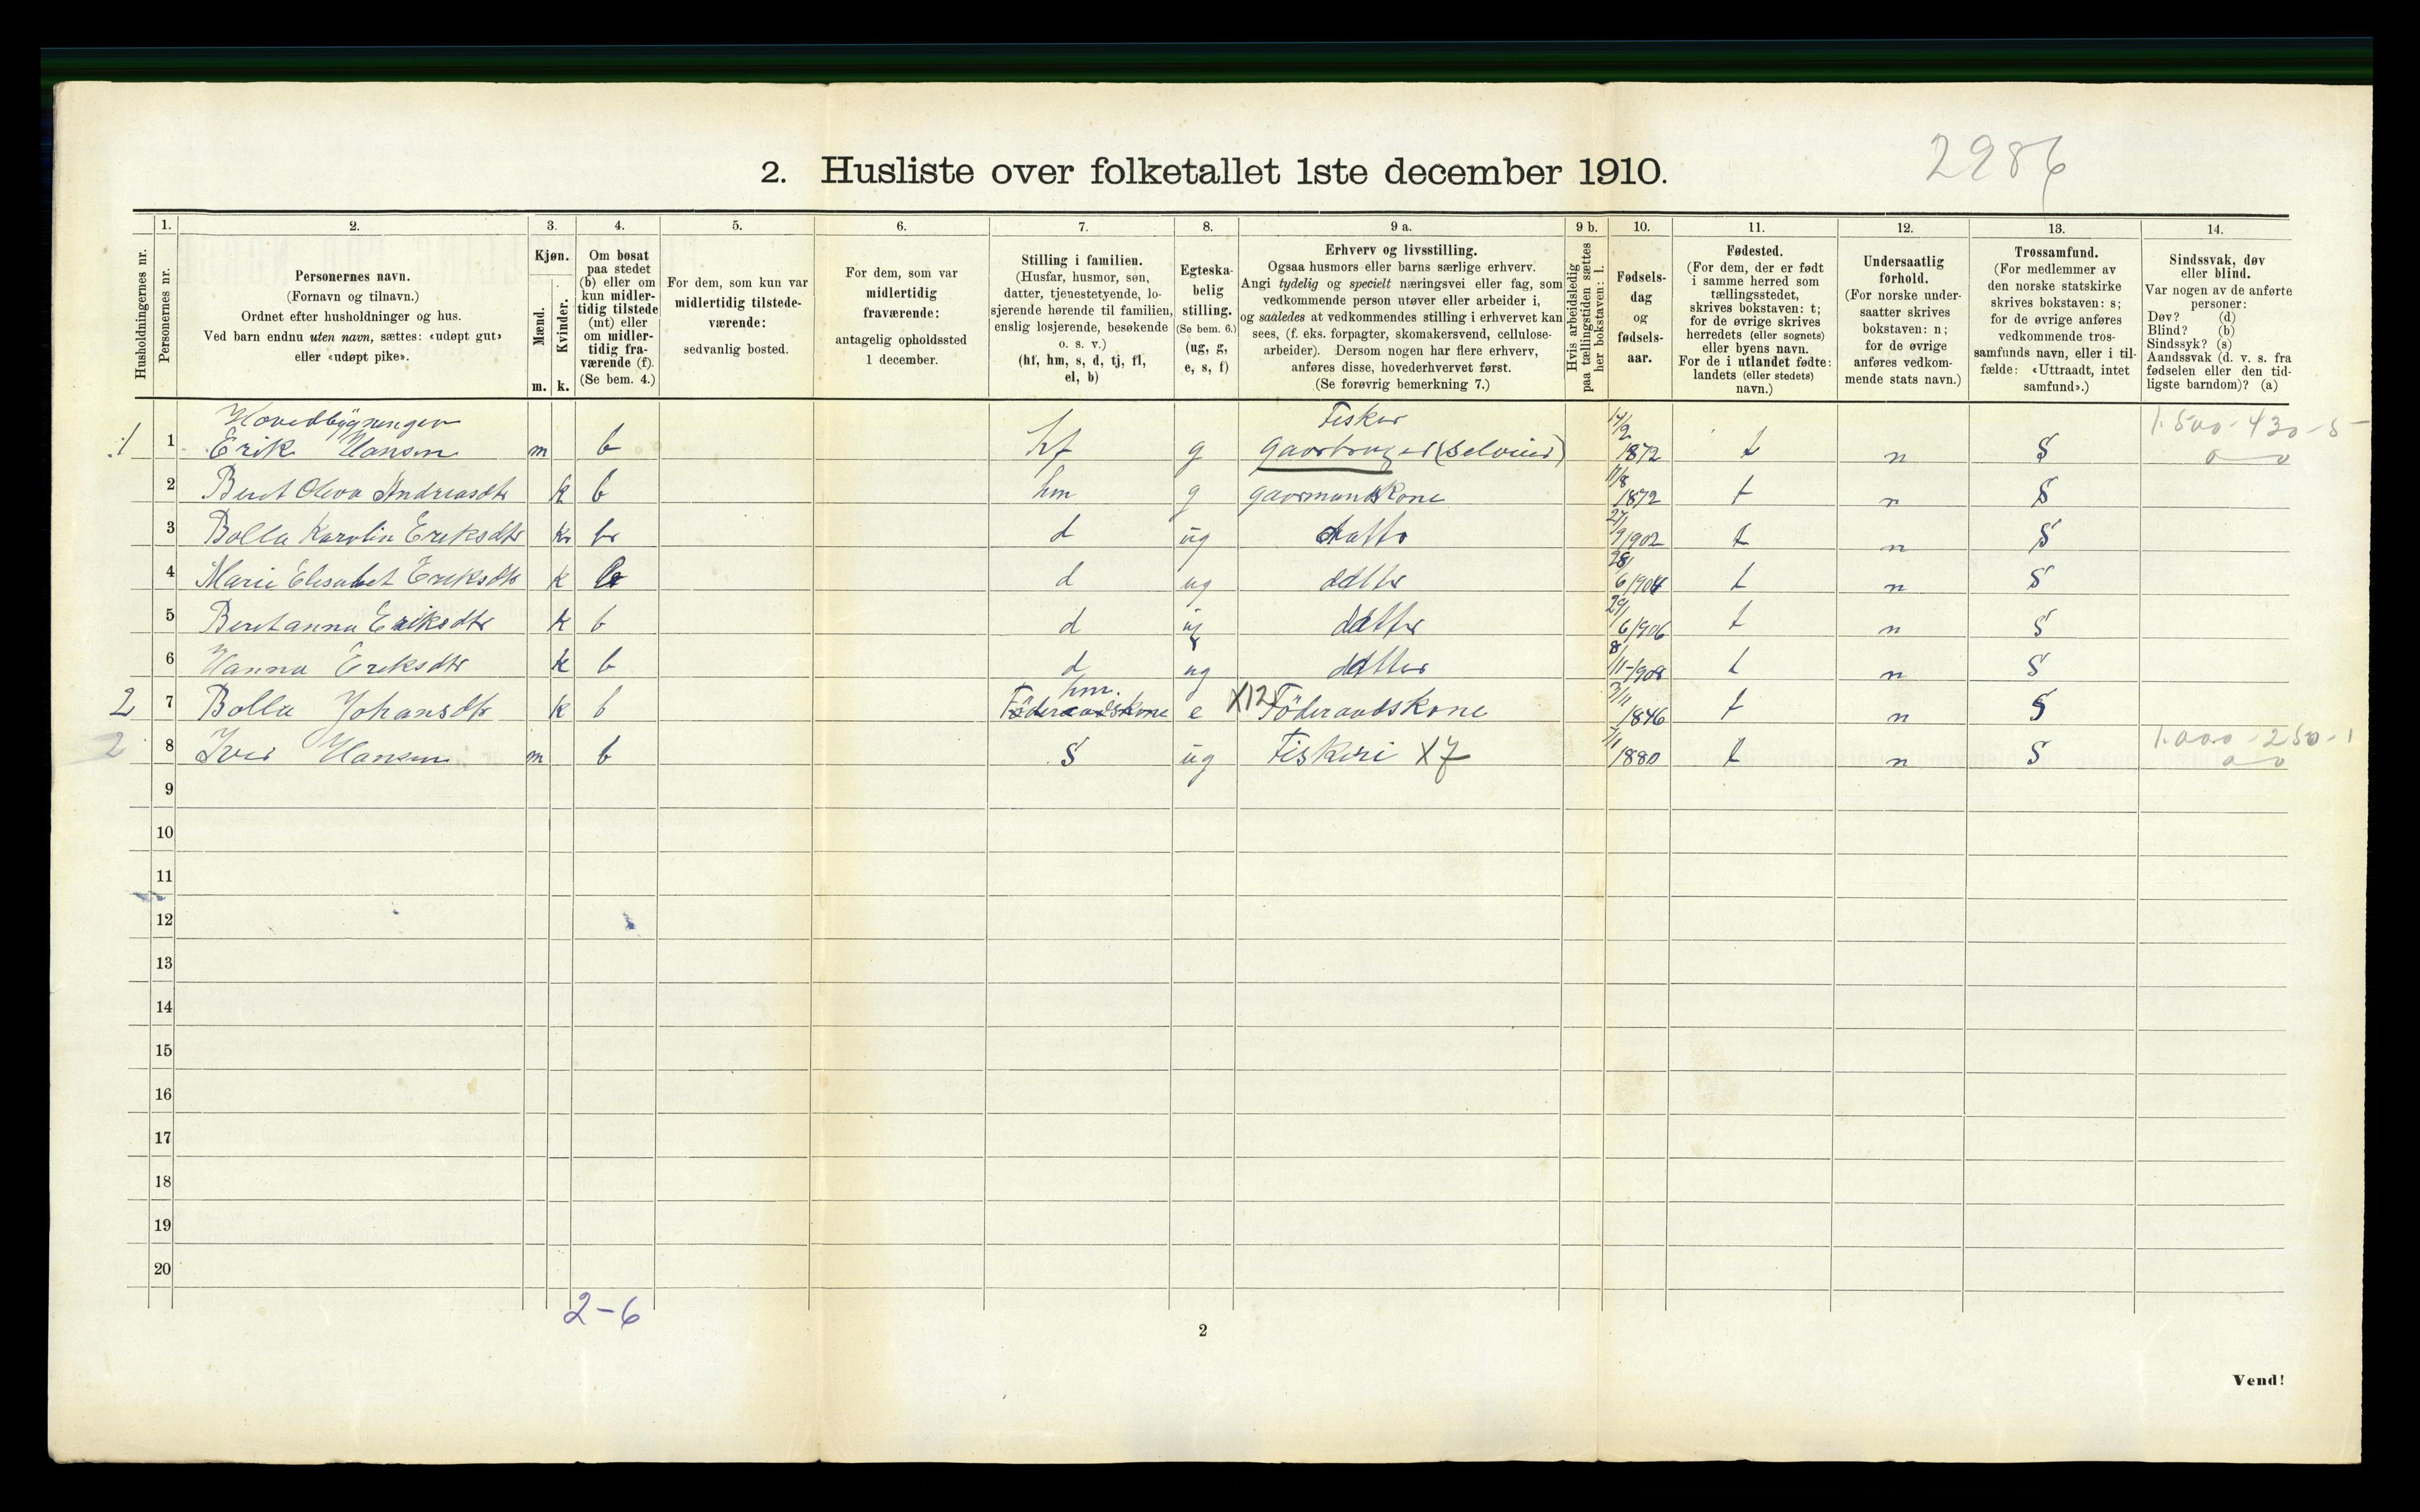 2986
2. Husliste over folketallet 1ste december 1910.
Husholdningernes nr.
1.
Personernes nr.
2.
Personernes navn.
(Fornavn og tilnavn.)
Ordnet efter husholdninger og hus.
Ved barn endnu uten navn, sættes: «udøpt gut»
eller «udøpt pike».
3.
Kjøn.
Mænd.
Kvinder.
m. k.
4.
Om bosat
paa stedet
(b) eller om
kun midler-
tidig tilstede
(mt) eller
om midler-
tidig fra-
værende (f).
(Se bem. 4.)
5.
For dem, som kun var
midlertidig tilstede-
værende:
sedvanlig bosted.
6.
For dem, som var
midlertidig
fraværende:
antagelig opholdssted
1 december.
7.
Stilling i familien.
(Husfar, husmor, søn,
datter, tjenestetyende, lo-
sjerende hørende til familien,
enslig losjerende, besøkende
o. s. v.)
(hf, hm, s, d, tj, fl,
el, b)
8.
Egteska-
belig
stilling.
(Se bem. 6.)
(ug, g,
e, s, f)
9 a.
Erhverv og livsstilling.
Ogsaa husmors eller barns særlige erhverv.
Angi tydelig og specielt næringsvei eller fag, som
vedkommende person utøver eller arbeider i,
og saaledes at vedkommendes stilling i erhvervet kan
sees, (f. eks. forpagter, skomakersvend, cellulose-
arbeider). Dersom nogen har flere erhverv,
anføres disse, hovederhvervet først.
(Se forøvrig bemerkning 7.)
9 b.
Hvis arbeidsledig
paa tællingstiden sættes
her bokstaven: l.
10.
Fødsels-
dag
og
fødsels-
aar.
11.
Fødested.
(For dem, der er født
i samme herred som
tællingsstedet,
skrives bokstaven: t;
for de øvrige skrives
herredets (eller sognets)
eller byens navn.
For de i utlandet fødte:
landets (eller stedets)
navn.)
12.
Undersaatlig
forhold.
(For norske under-
saatter skrives
bokstaven: n;
for de øvrige
anføres vedkom-
mende stats navn.)
13.
Trossamfund.
(For medlemmer av
den norske statskirke
skrives bokstaven: s;
for de øvrige anføres
vedkommende tros-
samfunds navn, eller i til-
fælde: «Uttraadt, intet
samfund».)
14.
Sindssvak, døv
eller blind.
Var nogen av de anførte
personer:
Døv? (d)
Blind? (b)
Sindssyk? (s)
Aandssvak (d. v. s. fra
fødselen eller den tid-
ligste barndom)? (a)
Hovedbygningen Fisker 1.500-430-5-
1 1 Erik Hansen m b hf g gaardbruger (Selveier) 14/2 1872 t n S
2 Berit Oleva Andreasdtr k b hm g gaardmandskone 11/8 1872 t n S
3 Bolla Karolin Eriksdtr k b d ug datter 27/9 1902 t n S
4 Marie Elisabet Eriksdtr k b d ug datter 28/6 1904 t n S
5 Beritanna Eriksdtr k b d ug datter 29/6 1906 t n S
6 Hanna Eriksdtr k b d ug datter 8/11-1908 t n S
hm.
2 7 Bolla Johansdtr k b Föderaadskone e X12 Föderaadskone 1846 t n S
2 8 Iver Hansen m b S ug Fiskeri X7 1880 t n S 1.000-250-1
9
10
11
12
13
14
15
16
17
18
19
20
2-6
2
Vend!